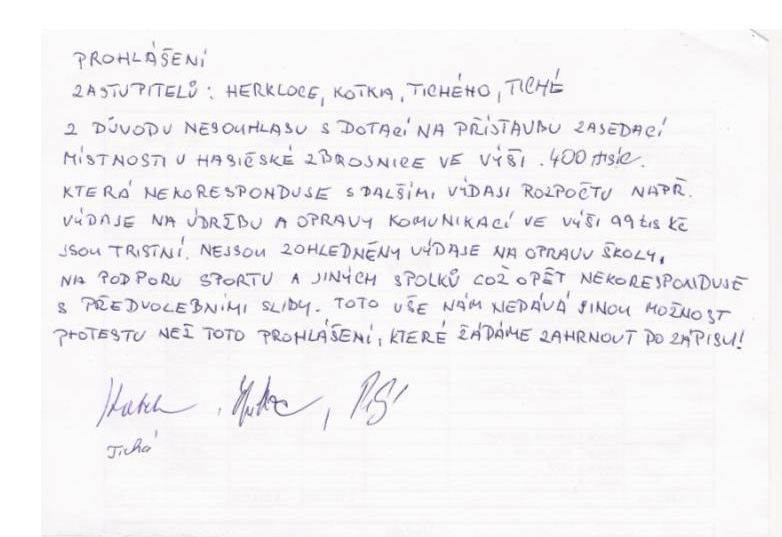 PROHLÁŠENÍ
ZASTUPITELŮ: HERKLOCE, KOTKA, TICHÉHO, TICHÉ
Z DŮVODU NESOUHLASU S DOTACÍ NA PŘÍSTAVBU ZASEDACÍ
MÍSTNOSTI U HASIČSKÉ ZBROJNICE VE VÝŠI 400 tisíc.
KTERÁ NEKORESPONDUJE S DALŠÍMI VÝDAJI ROZPOČTU NAPŘ.
VÝDAJE NA ÚDRŽBU A OPRAVY KOMUNIKACÍ VE VÝŠI 99 tis KČ
JSOU TRISTNÍ. NEJSOU ZOHLEDNĚNY VÝDAJE NA OPRAVU ŠKOLY,
NA PODPORU SPORTU A JINÝCH SPOLKŮ COŽ OPĚT NEKORESPONDUJE
S PŘEDVOLEBNÍMI SLIBY. TOTO VŠE NÁM NEDÁVÁ JINOU MOŽNOST
PROTESTU NEŽ TOTO PROHLÁŠENÍ, KTERÉ ŽÁDÁME ZAHRNOUT DO ZÁPISU!
Tichá